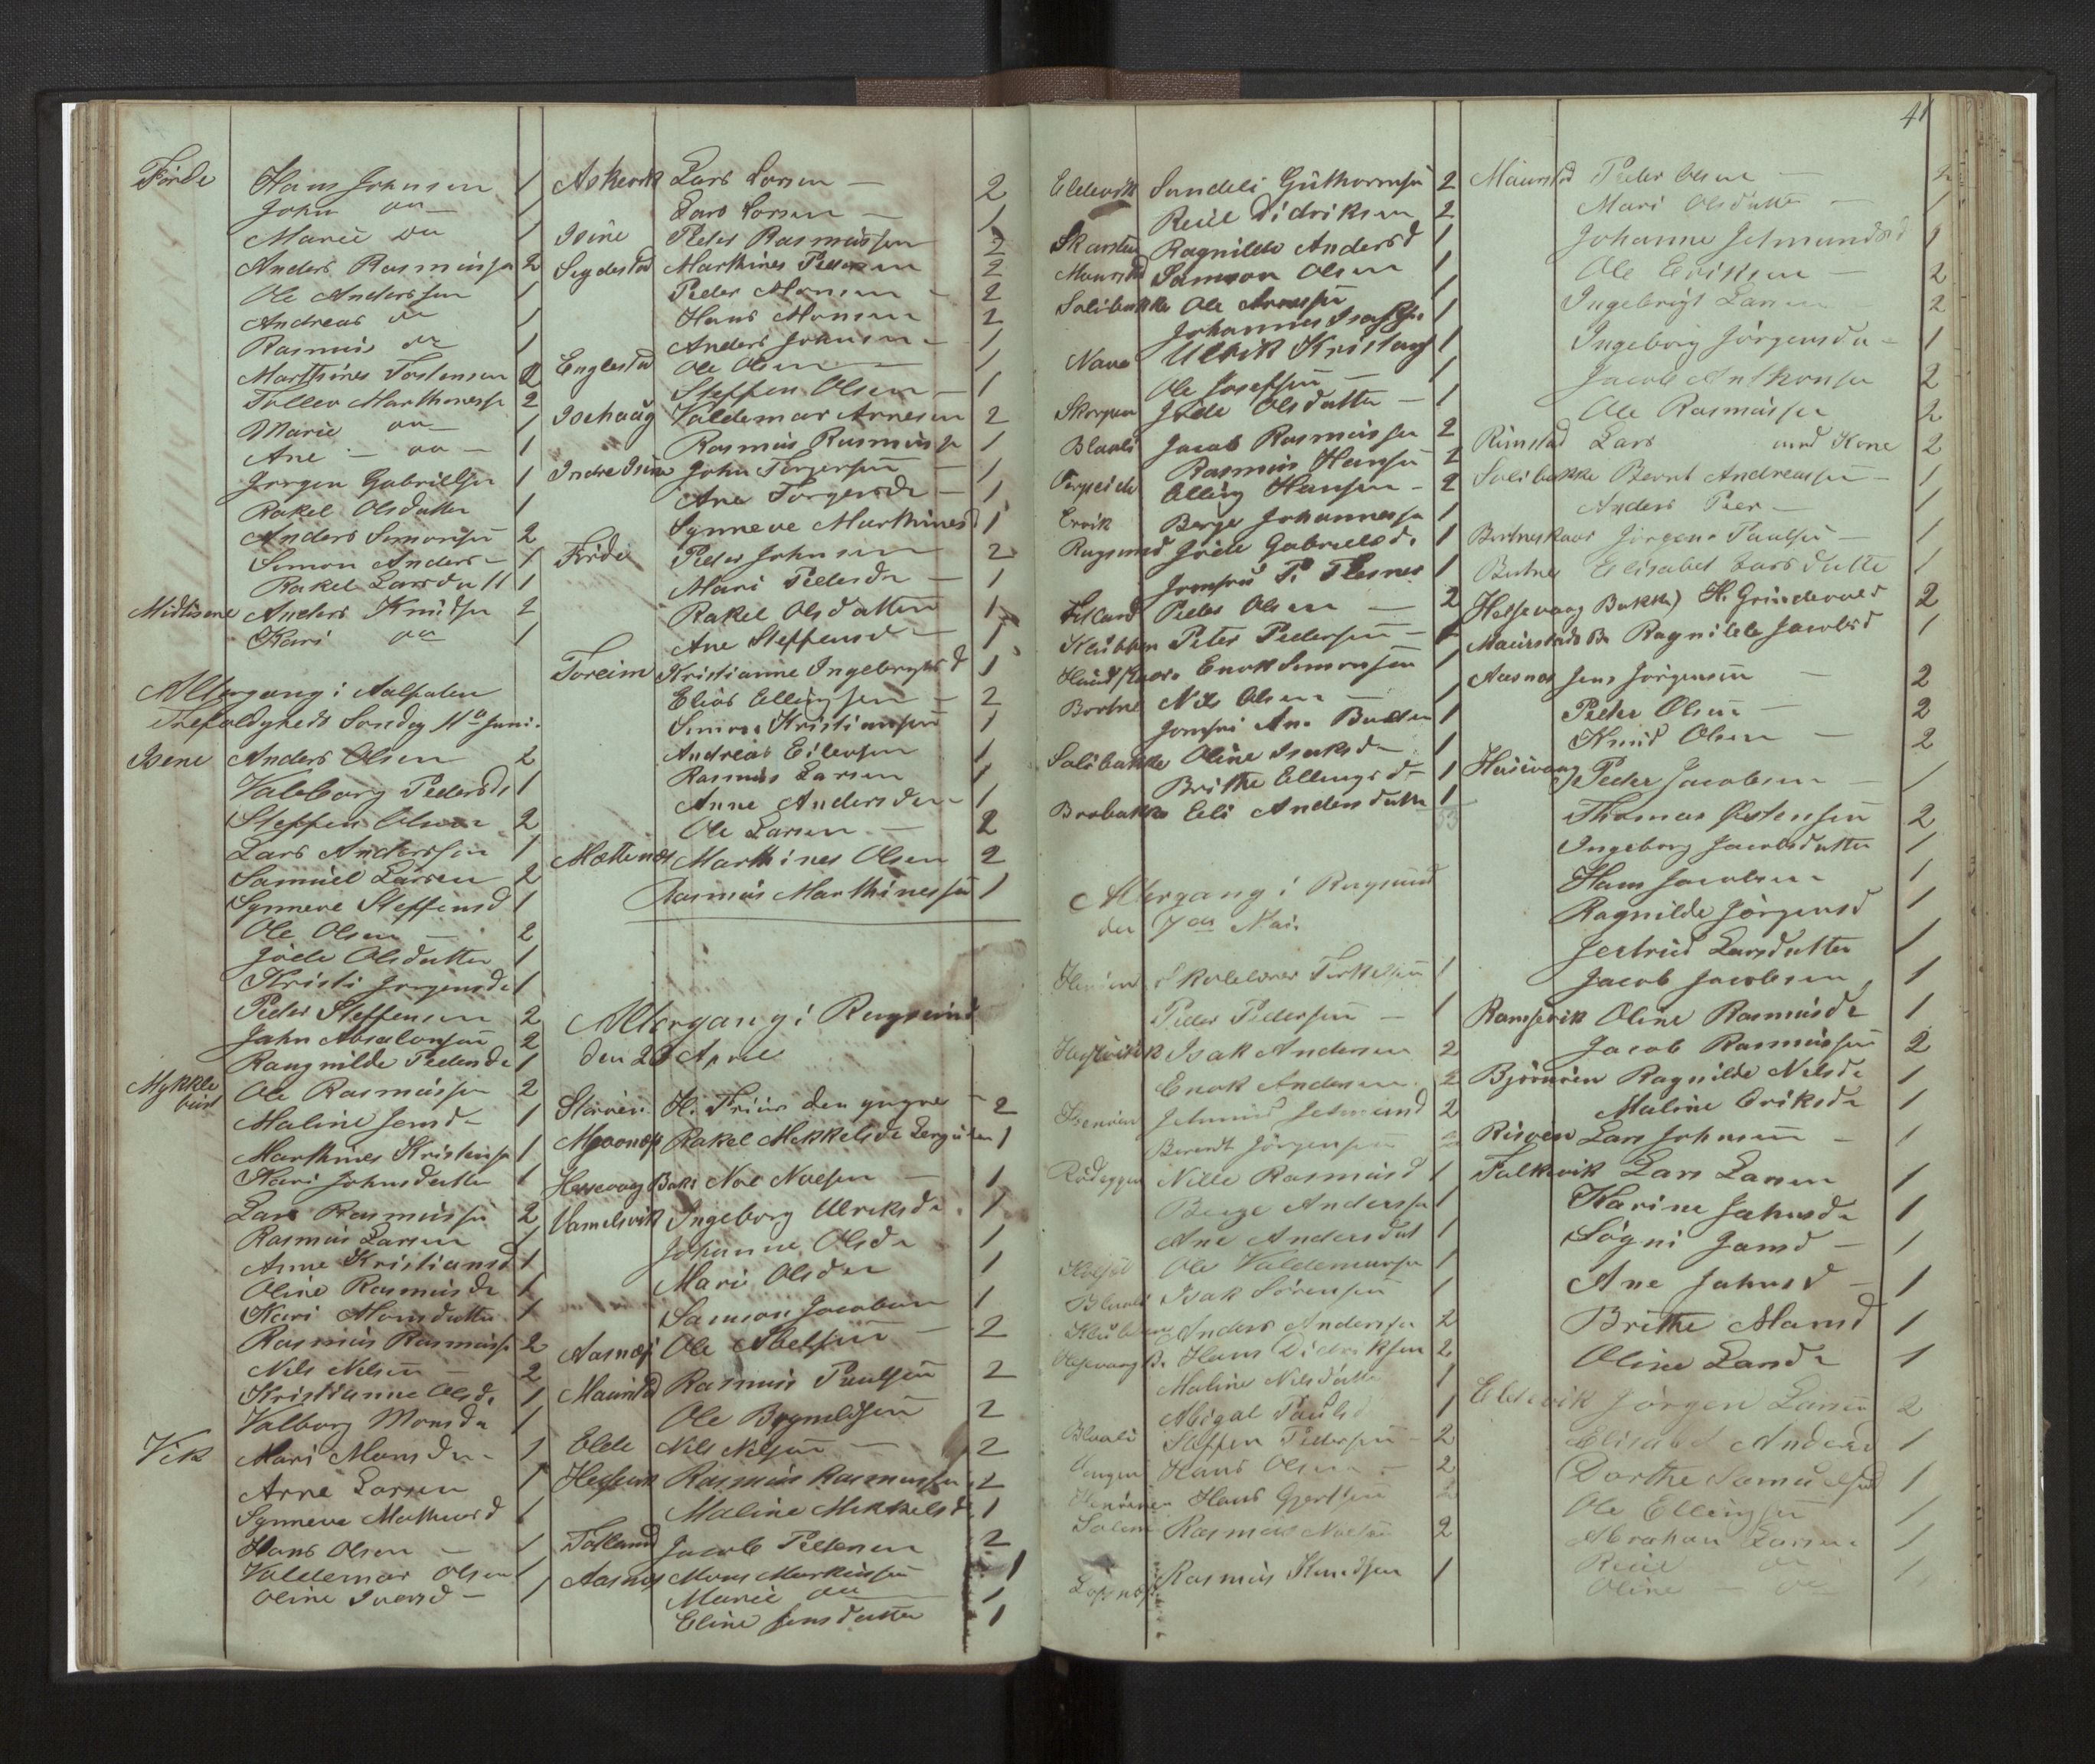 41
Förde Hans Johnsen 1
John do 1
Marie do 1
Anders Rasmussen 2
Ole Anderssen 1
Andreas do 1
Rasmus do 1
Marthines Tostensen 2
Tollev Marthinessen 2
Marie do 1
Ane do 1
Jörgen Gabrielsen 1
Rakel Olsdatter 1
Anders Simonsen 2
Simon Anders 1
Rakel Larsdatt 1
Anders Knudsen 2
Kari do 1
Altergang i Aalfoten
Trefoldigheds Söndag 11te Juni.
Isene Anders Olsen 2
Valborg Pedersd 1
Steffen Olsen 2
Lars Anderssen 1
Samuel Larsen 2
Synneve Steffensd 1
Ole Olsen 2
Jöde Olsdatter 1
Kristi Jörgensd 1
Peder Steffensen 2
John Absalonsen 2
Rangnilde Pedersd 1
Mykkle bust Ole Rasmussen 2
Maline Jensd 1
Marthines Kristens 1
Kari Johnsdatter 1
Lars Rasmussen 2
Rasmus Larsen 1
Anne Kristiansd 1
Oline Rasmusd 1
Kari Monsdatter 1
Rasmus Rasmuss 2
Nils Nilsen 2
Kristianne Olsd. 1
Valborg Monsd 1
Vik Mari Monsd 1
Arne Larsen 1
Synneve Mathiasd 1
Hans Olsen 1
Valdemar Olsen 1
Oline Iversd 1
Askevik Lars Larsen 2
Lars Larsen 1
Isene Peder Rasmussen 2
Sigdestad Marthines Pedersen 2
Peder Monsen 2
Hans Monsen 2
Anders Johnsen 1
Englestad Ole Olsen 1
Steffen Olsen 1
Isehaug Valdemar Arnesen 2
Rasmus Rasmussen 1
Indre Isene John Torgersen 1
Ane Torgersd 1
Synneve Marthinesd 1
Förde Peder Johnsen 2
Mari Pedersd 1
Rakel Olsdatter 1
Ane Steffensd 1
Foreim Kristianne Ingebrigtsd 1
Elias Ellingsen 2
Simon Kristiansen 1
Andreas Eilevsen 1
Rasmus Larsen 1
Anne Andersd 1
Ole Larsen 2
Marthines Olsen 2
Rasmus Marthinessen 1
Altergang i Rugsund
den 23 April
H. Friis den yngre 2
Rakel Mekkelsd 1
Noe Noesen 1
Vamelsvik Ingeborg Ulriksd. 1
Johanne Olsd 1
Mari Olsd 1
Samson Jacobsen 1
Aasnæs Ole Abelsen 2
Maurstad Rasmus Paulsen 2
Ole Brynildsen 2
Elde Nils Nilsen 2
Rasmus Rasmussen 2
Maline Mekkelsd 1
Totland Jacob Pedersen 2
Aasnes Mons Markussen 1
Marie do 1
Eline Jensdatter 1
Eldevik Sandeli Guthormsen 2
Reiel Didriksen 2
Skarsten Ragnilde Andersd 1
Maurstad Samson Olsen 1
Solibakke Ole Arnessen 1
Johannes 1
Nave Ulrik 1
Ole Josefsen 1
Skorpen Jöde Olsdatter 1
Blaali Jacob Rasmussen 2
Rasmus Hansen 2
Elling Hansen 2
Ervik Berge Johannessen 1
Rugsund Jöde Gabrielsd. 1
Jomfru 1
Totland Peder Olsen 2
Klubben Peter Pedersen 1
Enok Simonsen 1
Bortne Nils Olsen 1
Jomfru An. 1
Solibakke Oline Isaksd 1
Brithe Ellingsd 1
Brobakke Eli Andersdatter 1
53
Altergang i Rugsund
den 7de Mai.
Peder Pedersen 1
Isak Andersen 2
Enok Andersen 2
2
Berendt Jörgensen 2
Rödeggen Nille Rasmusd 1
Berge Anderssen 1
Ane Andersdat 1
Ole Valdemarsen 1
Blaali Isak Sörensen 1
Anders Anderssen 2
Hans Didriksen 2
Maline Nilsdatter 1
Abigal Paulsd 1
Blaali Steffen Pedersen 2
Hans Olsen 2
Hans Gjertsen 2
Rasmus Noesen 2
Rasmus Knudsen 1
Maurstad Peder Olsen 2
Mari Olsdatter 1
Johanne Jetmundsd 1
Ole Eriksen 2
Ingebrigt Larsen 2
Ingeborg Jörgensd 1
Jacob Anthonsen 2
Ole Rasmussen 2
Rimstad Lars med Kone 2
Solibakke Bernt Andreassen 1
Anders Peer 1
Jörgen Paulsen 1
Bortne Elisabet Larsdatte 1
2
Ragnilde Jacobsd 1
Aasnæs Jens Jörgensen 2
Peder Olsen 2
Knud Olsen 2
Husevaag Peder Jacobsen 1
Thomas Östensen 2
Ingeborg Jacobsdatter 1
Hans Jacobsen 1
Ragnilde Jörgensd 1
Jertrud Larsdatter 1
Jacob Jacobsen 1
Ramsevik Oline Rasmusd 1
Jacob Rasmussen 2
Björnören Ragnilde Nilsd 1
Maline Eriksd 1
Risöen Lars Johnsen 1
Falkevik Lars Larsen 1
Karine Johnsd 1
Sögni 1
Ane Johnsd 1
Brithe Monsd 1
Oline Larsd 1
Eldevik Jörgen Larsen 2
Elisabet Andersd 1
Dorthe Samuelsd 1
Ole Ellingsen 1
Abraham Larsen 1
Reiel do 1
Oline do 1